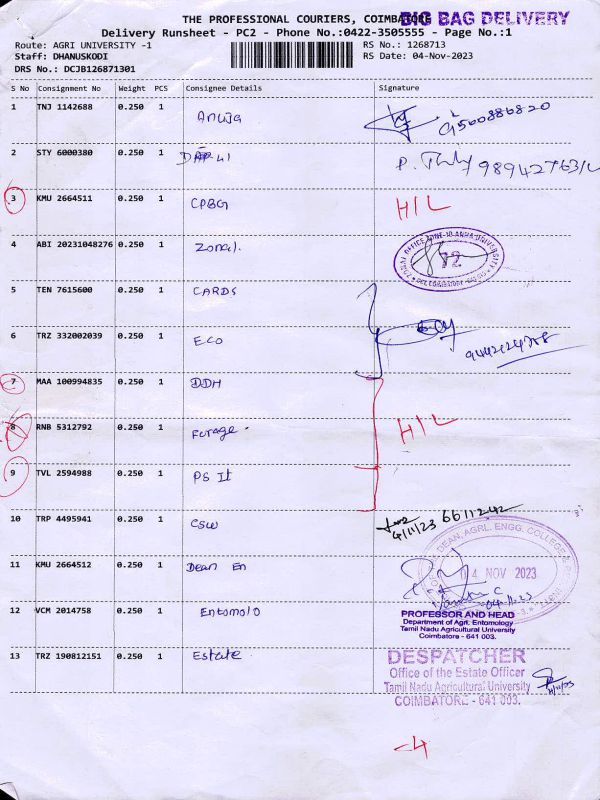 THE PROFESSIONAL COURIERS, COIMBATORE
BIG BAG DELIVERY
Delivery Runsheet - PC2 - Phone No.:0422-3505555 - Page No.:1
Route: AGRI UNIVERSITY -1 RS No.: 1268713
Staff: DHANUSKODI RS Date: 04-Nov-2023
DRS No.: DCJB126871301
S No Consignment No Weight PCS Consignee Details Signature
1 TNJ 1142688 0.250 1 Anuja
2 STY 6000380 0.250 1
3 KMU 2664511 0.250 1 CPBG H/L
4 ABI 20231048276 0.250 1 Zonal. 72
5 TEN 7615600 0.250 1 CARDS
6 TRZ 332002039 0.250 1 ECO
7 MAA 100994835 0.250 1 DDH
8 RNB 5312792 0.250 1 Forage. H/L
9 TVL 2594988 0.250 1 PS II
10 TRP 4495941 0.250 1 CSW 4/11/23 6611242
DEAN, AGRL. ENGG. COLLEGE &
11 KMU 2664512 0.250 1 Dean En 04 NOV 2023
04.11.23
12 VCM 2014758 0.250 1 Entomolo PROFESSOR AND HEAD
Department of Agrl. Entomology
Tamil Nadu Agricultural University
Coimbatore - 641 003.
13 TRZ 190812151 0.250 1 Estate. DESPATCHER
Office of the Estate Officer
Tamil Nadu Agricultural University
COIMBATORE - 641 003.
-4